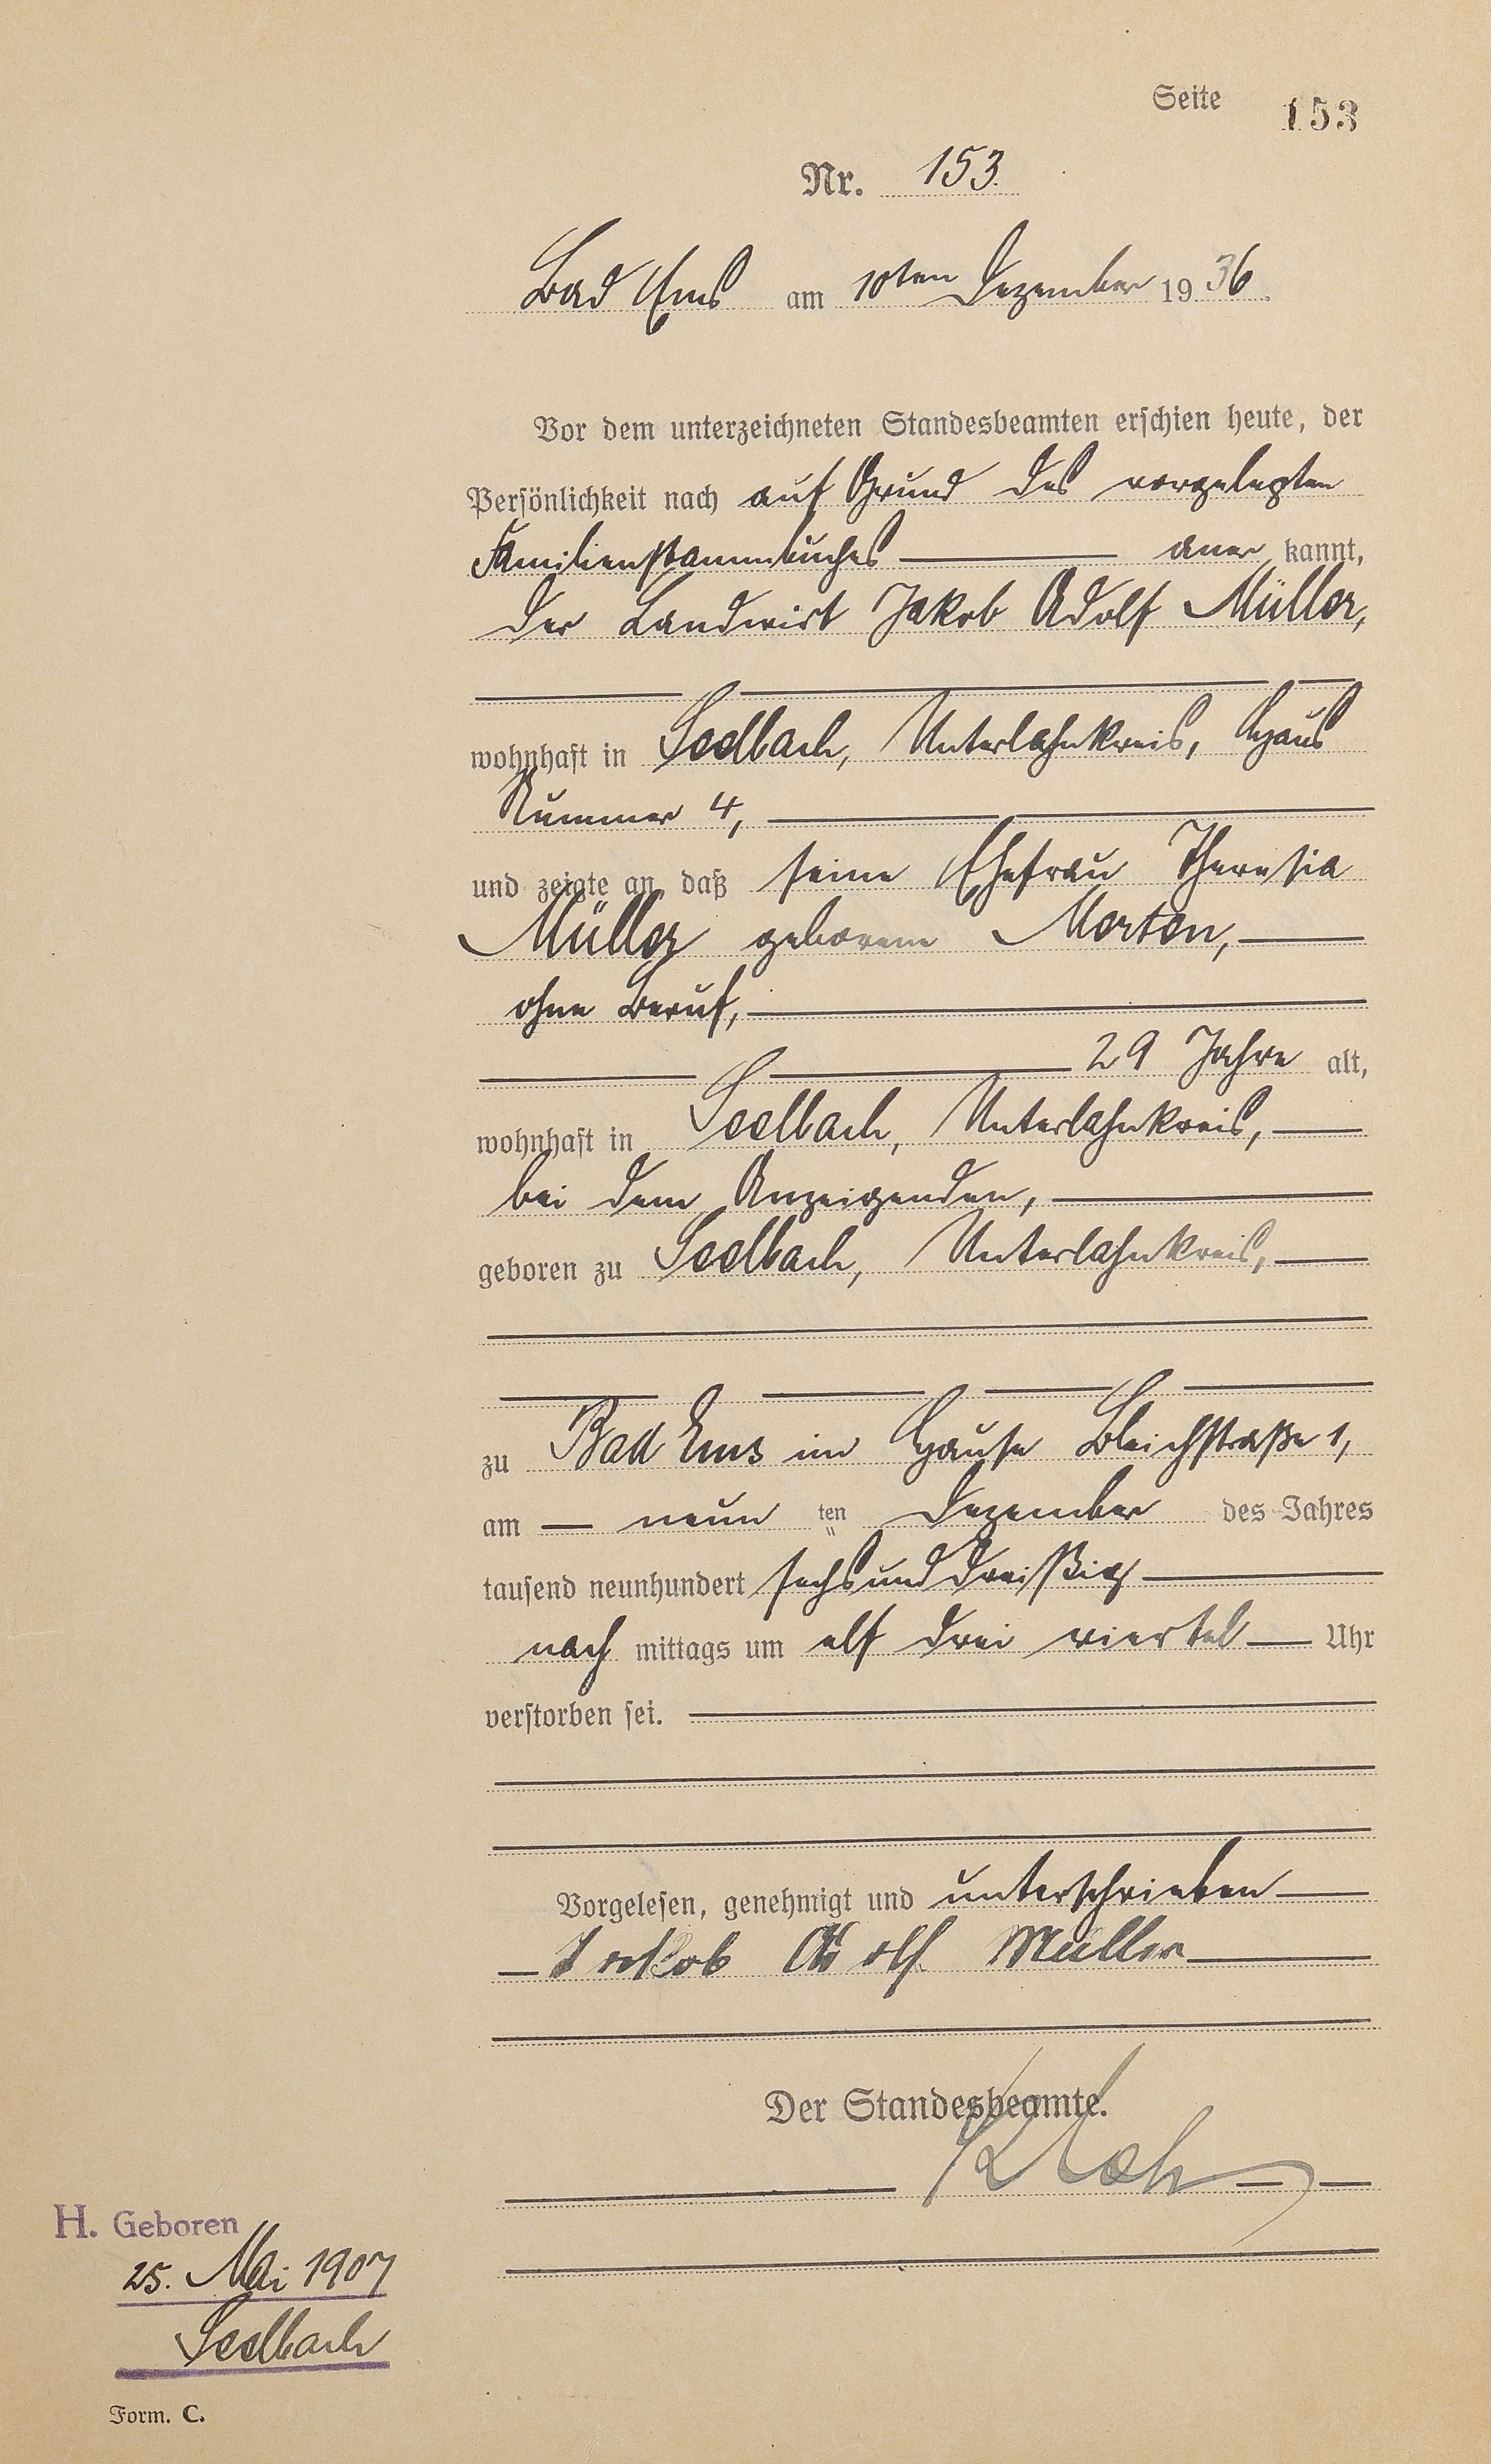 Seite 153
Nr. 153.
Bad Ems am 10ten Dezember 1936.
Vor dem unterzeichneten Standesbeamten erschien heute, der
Persönlichkeit nach auf Grund des vorgelegten
Familienstammbuches aner kannt,
der Landwirt Jakob Adolf Müller,
wohnhaft in Seelbach, Unterlahnkreis, Haus
Nummer 4,
und zeigte an, daß seine Ehefrau Theresia
Müller geborene Morten,
ohne Beruf,
29 Jahre alt,
wohnhaft in Seelbach, Unterlahnkreis,
bei dem Anzeigenden,
geboren zu Seelbach, Unterlahnkreis,
zu Bad Ems im Hause Bleichstraße 1,
am neun ten Dezember des Jahres
tausend neunhundert sechsunddreißig
nach mittags um elf drei viertel Uhr
verstorben sei.
Vorgelesen, genehmigt und unterschrieben
Jakob Adolf Müller
Der Standesbeamte.
H. Geboren
25. Mai 1907
Seelbach
Form. C.